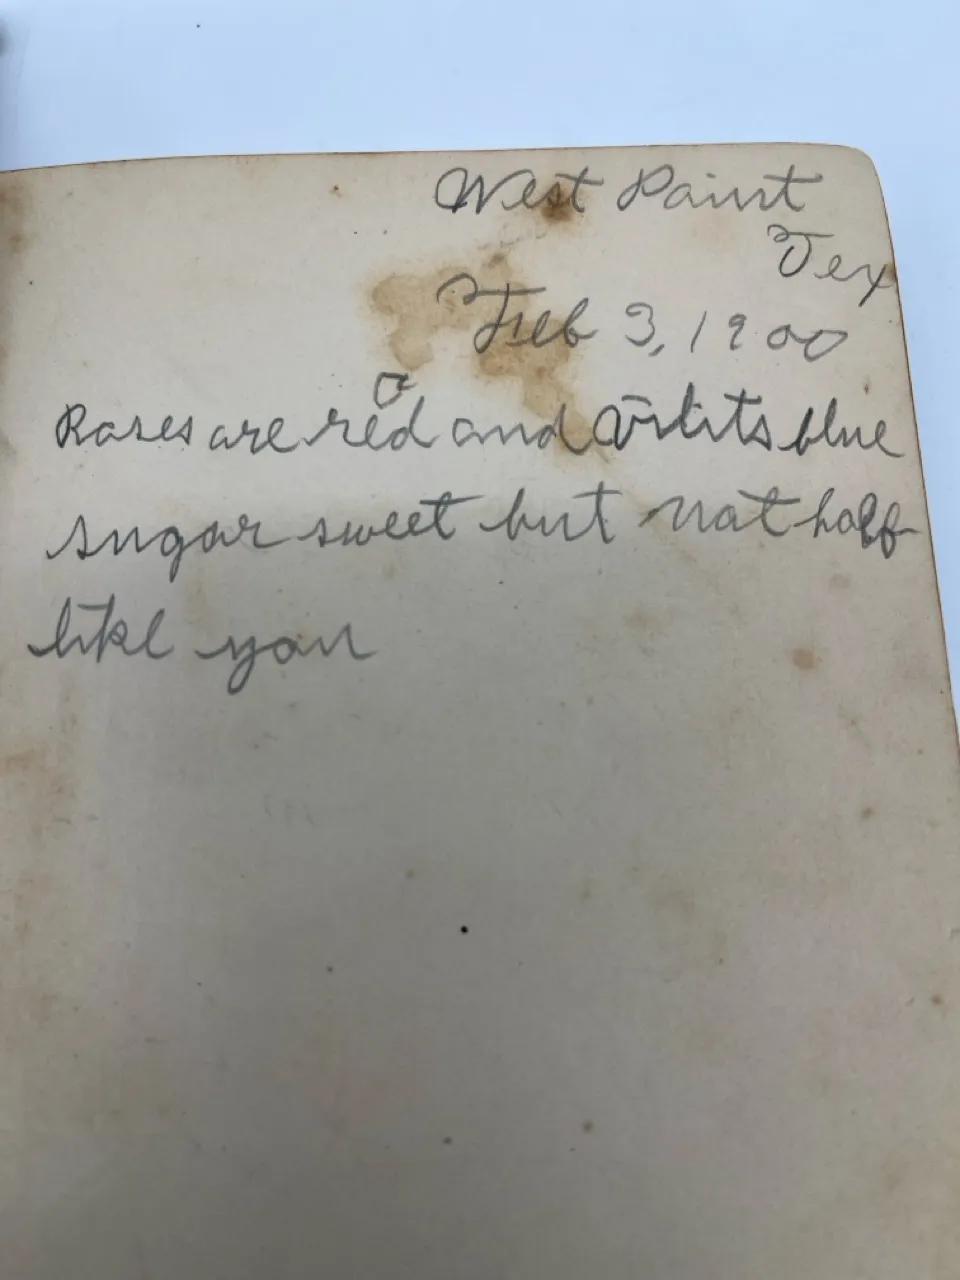 West Point
Tex
Feb 3, 1900
Roses are red and Vilits blue
sugar sweet but not half
like you